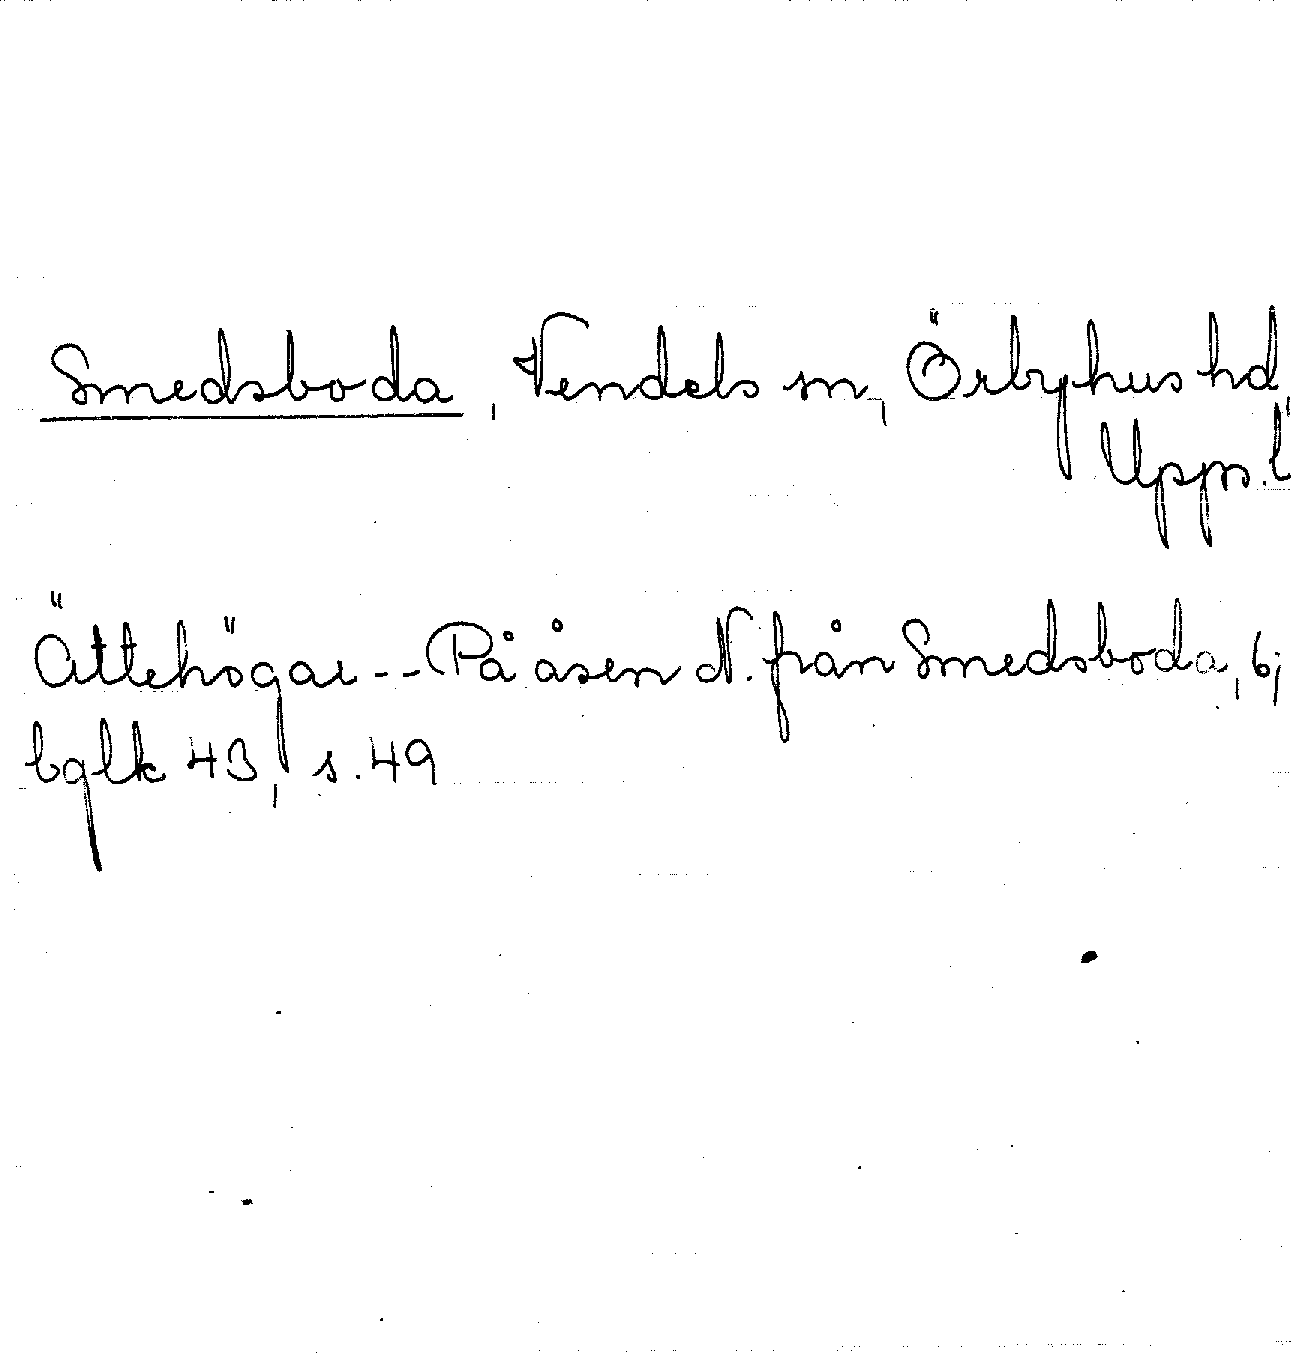 Smedsboda, Vendels sn, Örbyhus hd,
Upps. l
Ättehögar -- På åsen N. från Smedsboda, 6;
bglk 43, s. 49